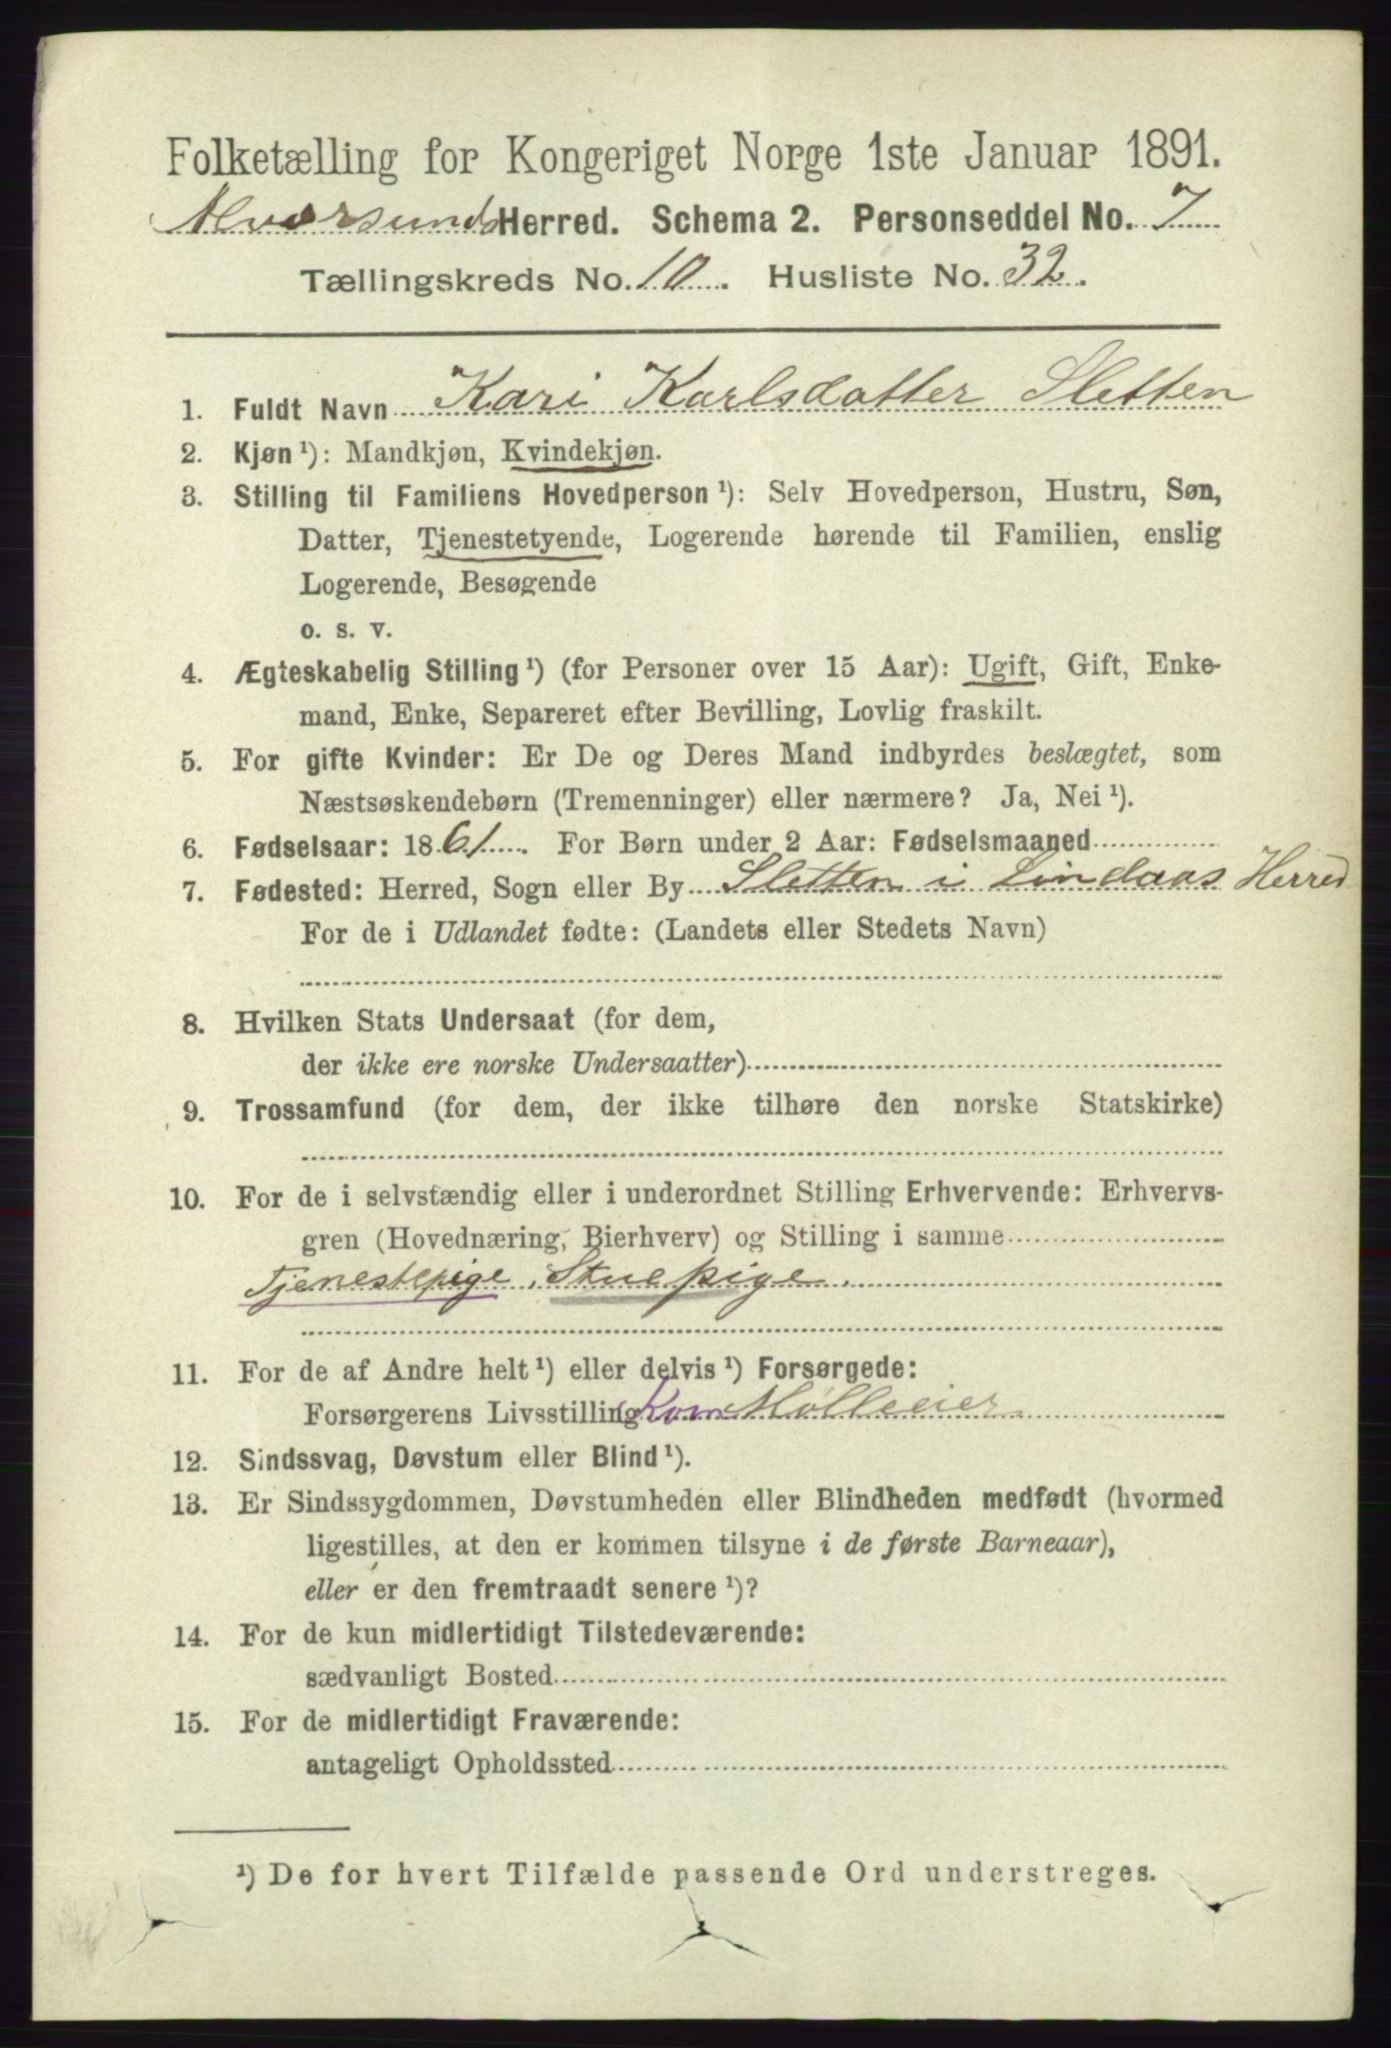 Folketælling for Kongeriget Norge 1ste Januar 1891.
Alversunds Herred. Schema 2. Personseddel No. 7
Tællingskreds No. 10. Husliste No. 32.
1. Fuldt Navn Kari Karlsdatter Sletten
2. Kjøn ¹): Mandkjøn, Kvindekjøn.
3. Stilling til Familiens Hovedperson ¹): Selv Hovedperson, Hustru, Søn,
Datter, Tjenestetyende, Logerende hørende til Familien, enslig
Logerende, Besøgende
o. s. v.
4. Ægteskabelig Stilling ¹) (for Personer over 15 Aar): Ugift, Gift, Enke-
mand, Enke, Separeret efter Bevilling, Lovlig fraskilt.
5. For gifte Kvinder: Er De og Deres Mand indbyrdes beslægtet, som
Næstsøskendebørn (Tremenninger) eller nærmere? Ja, Nei ¹).
6. Fødselsaar: 1861. For Børn under 2 Aar: Fødselsmaaned
7. Fødested: Herred, Sogn eller By Sletten i Lindaas Herred
For de i Udlandet fødte: (Landets eller Stedets Navn)
8. Hvilken Stats Undersaat (for dem,
der ikke ere norske Undersaatter)
9. Trossamfund (for dem, der ikke tilhøre den norske Statskirke)
10. For de i selvstændig eller i underordnet Stilling Erhvervende: Erhvervs-
gren (Hovednæring, Bierhverv) og Stilling i samme
Tjenestepige, Stuepige.
11. For de af Andre helt ¹) eller delvis ¹) Forsørgede:
Forsørgerens Livsstilling Korn Mølleeier
12. Sindssvag, Døvstum eller Blind ¹).
13. Er Sindssygdommen, Døvstumheden eller Blindheden medfødt (hvormed
ligestilles, at den er kommen tilsyne i de første Barneaar),
eller er den fremtraadt senere ¹)?
14. For de kun midlertidigt Tilstedeværende:
sædvanligt Bosted
15. For de midlertidigt Fraværende:
antageligt Opholdssted
¹) De for hvert Tilfælde passende Ord understreges.